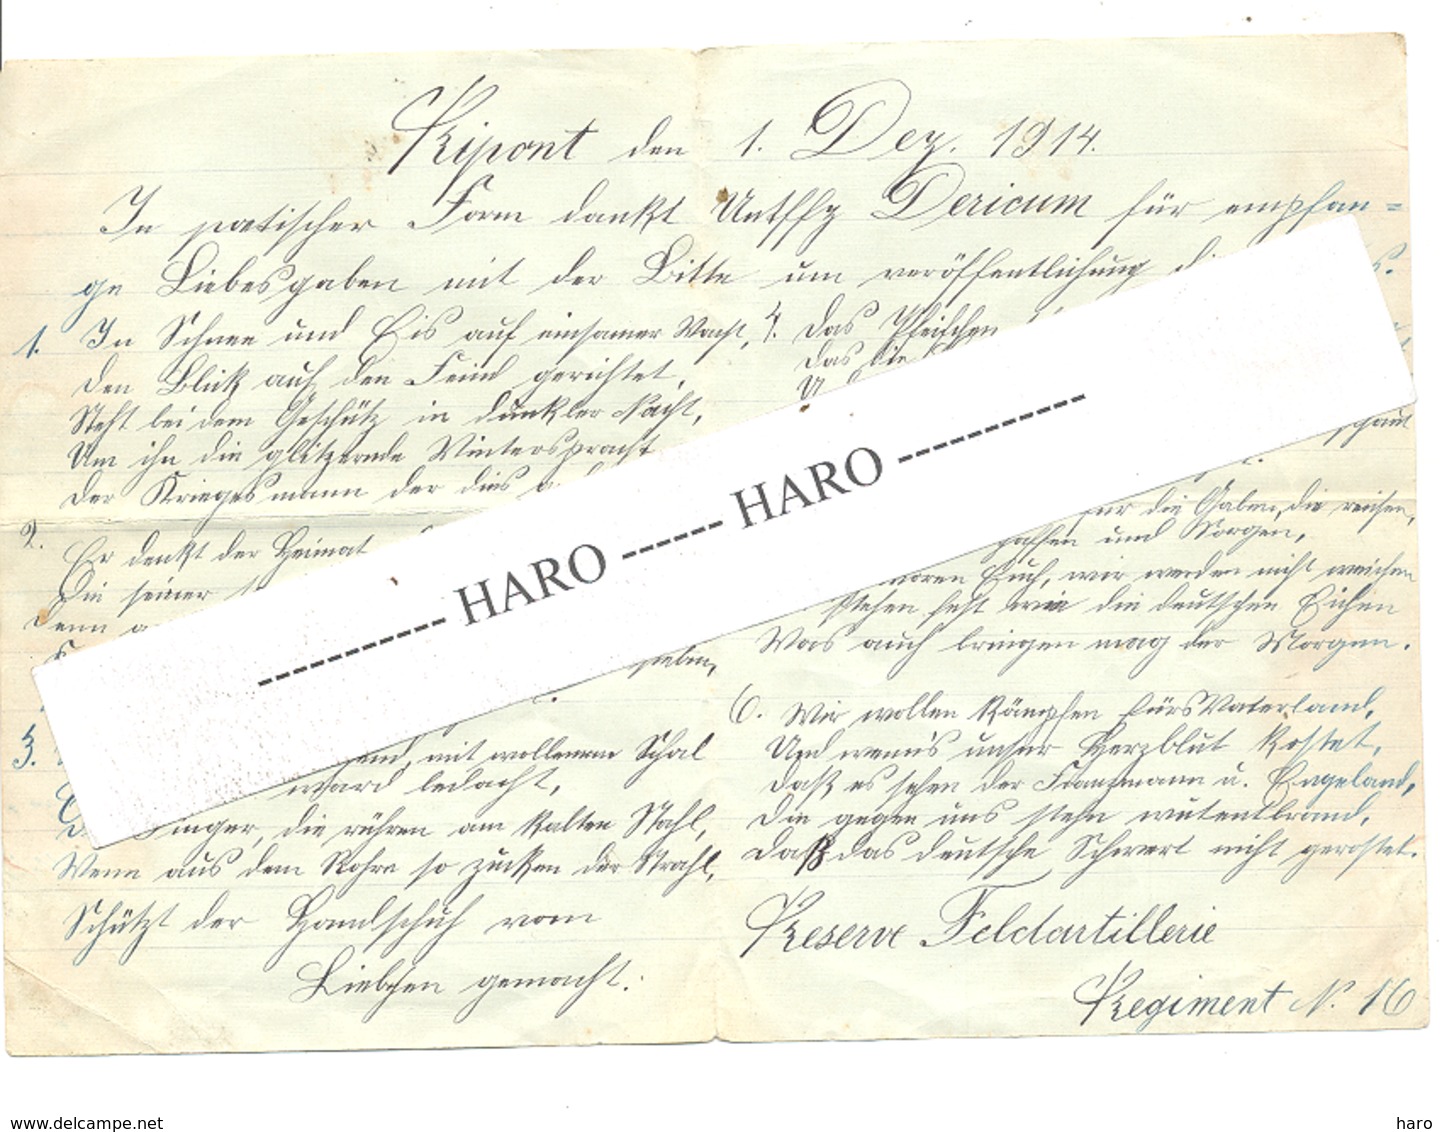 Ripont den 1. Dez. 1914.
In poetischer Form dankt Untffz Dericum für empfan=
ge Liebesgaben mit der Bitte um veröffentlichung
1. In Schnee und Eis auf einsamer Wacht,
Den Blick auf den Feind gerichtet,
Steht bei dem Geschütz in dunkler Nacht,
Um ihn die glitzernde Winterspracht
Der Kriegesmann der dies
2. Er denkt der Heimat
Die seiner
Denn
3.
mit wollenem Schal
ward bedacht,
Finger, die rühren am kalten Stahl,
Wenn aus dem Rohre so zucken der Strahl,
Schützt der Handschuh vom
Liebchen gemacht.
4. Das Pfeifchen
Das die
für die Gaben, die reichen,
und Sorgen,
Euch, wir werden nicht weichen
Stehen fest wie die deutschen Eichen
Was auch bringen mag der Morgen.
6. Wir wollen kämpfen fürs Vaterland,
Und wenns unser Herzblut kostet,
Daß es sehen der Franzmann u. Engeland,
Die gegen uns stehn wutentbrand,
Daß das deutsche Schwert nicht gerostet.
Reserve Feldartillerie
Regiment N. 16
--------- HARO ------ HARO -----------
delcampe.net
haro